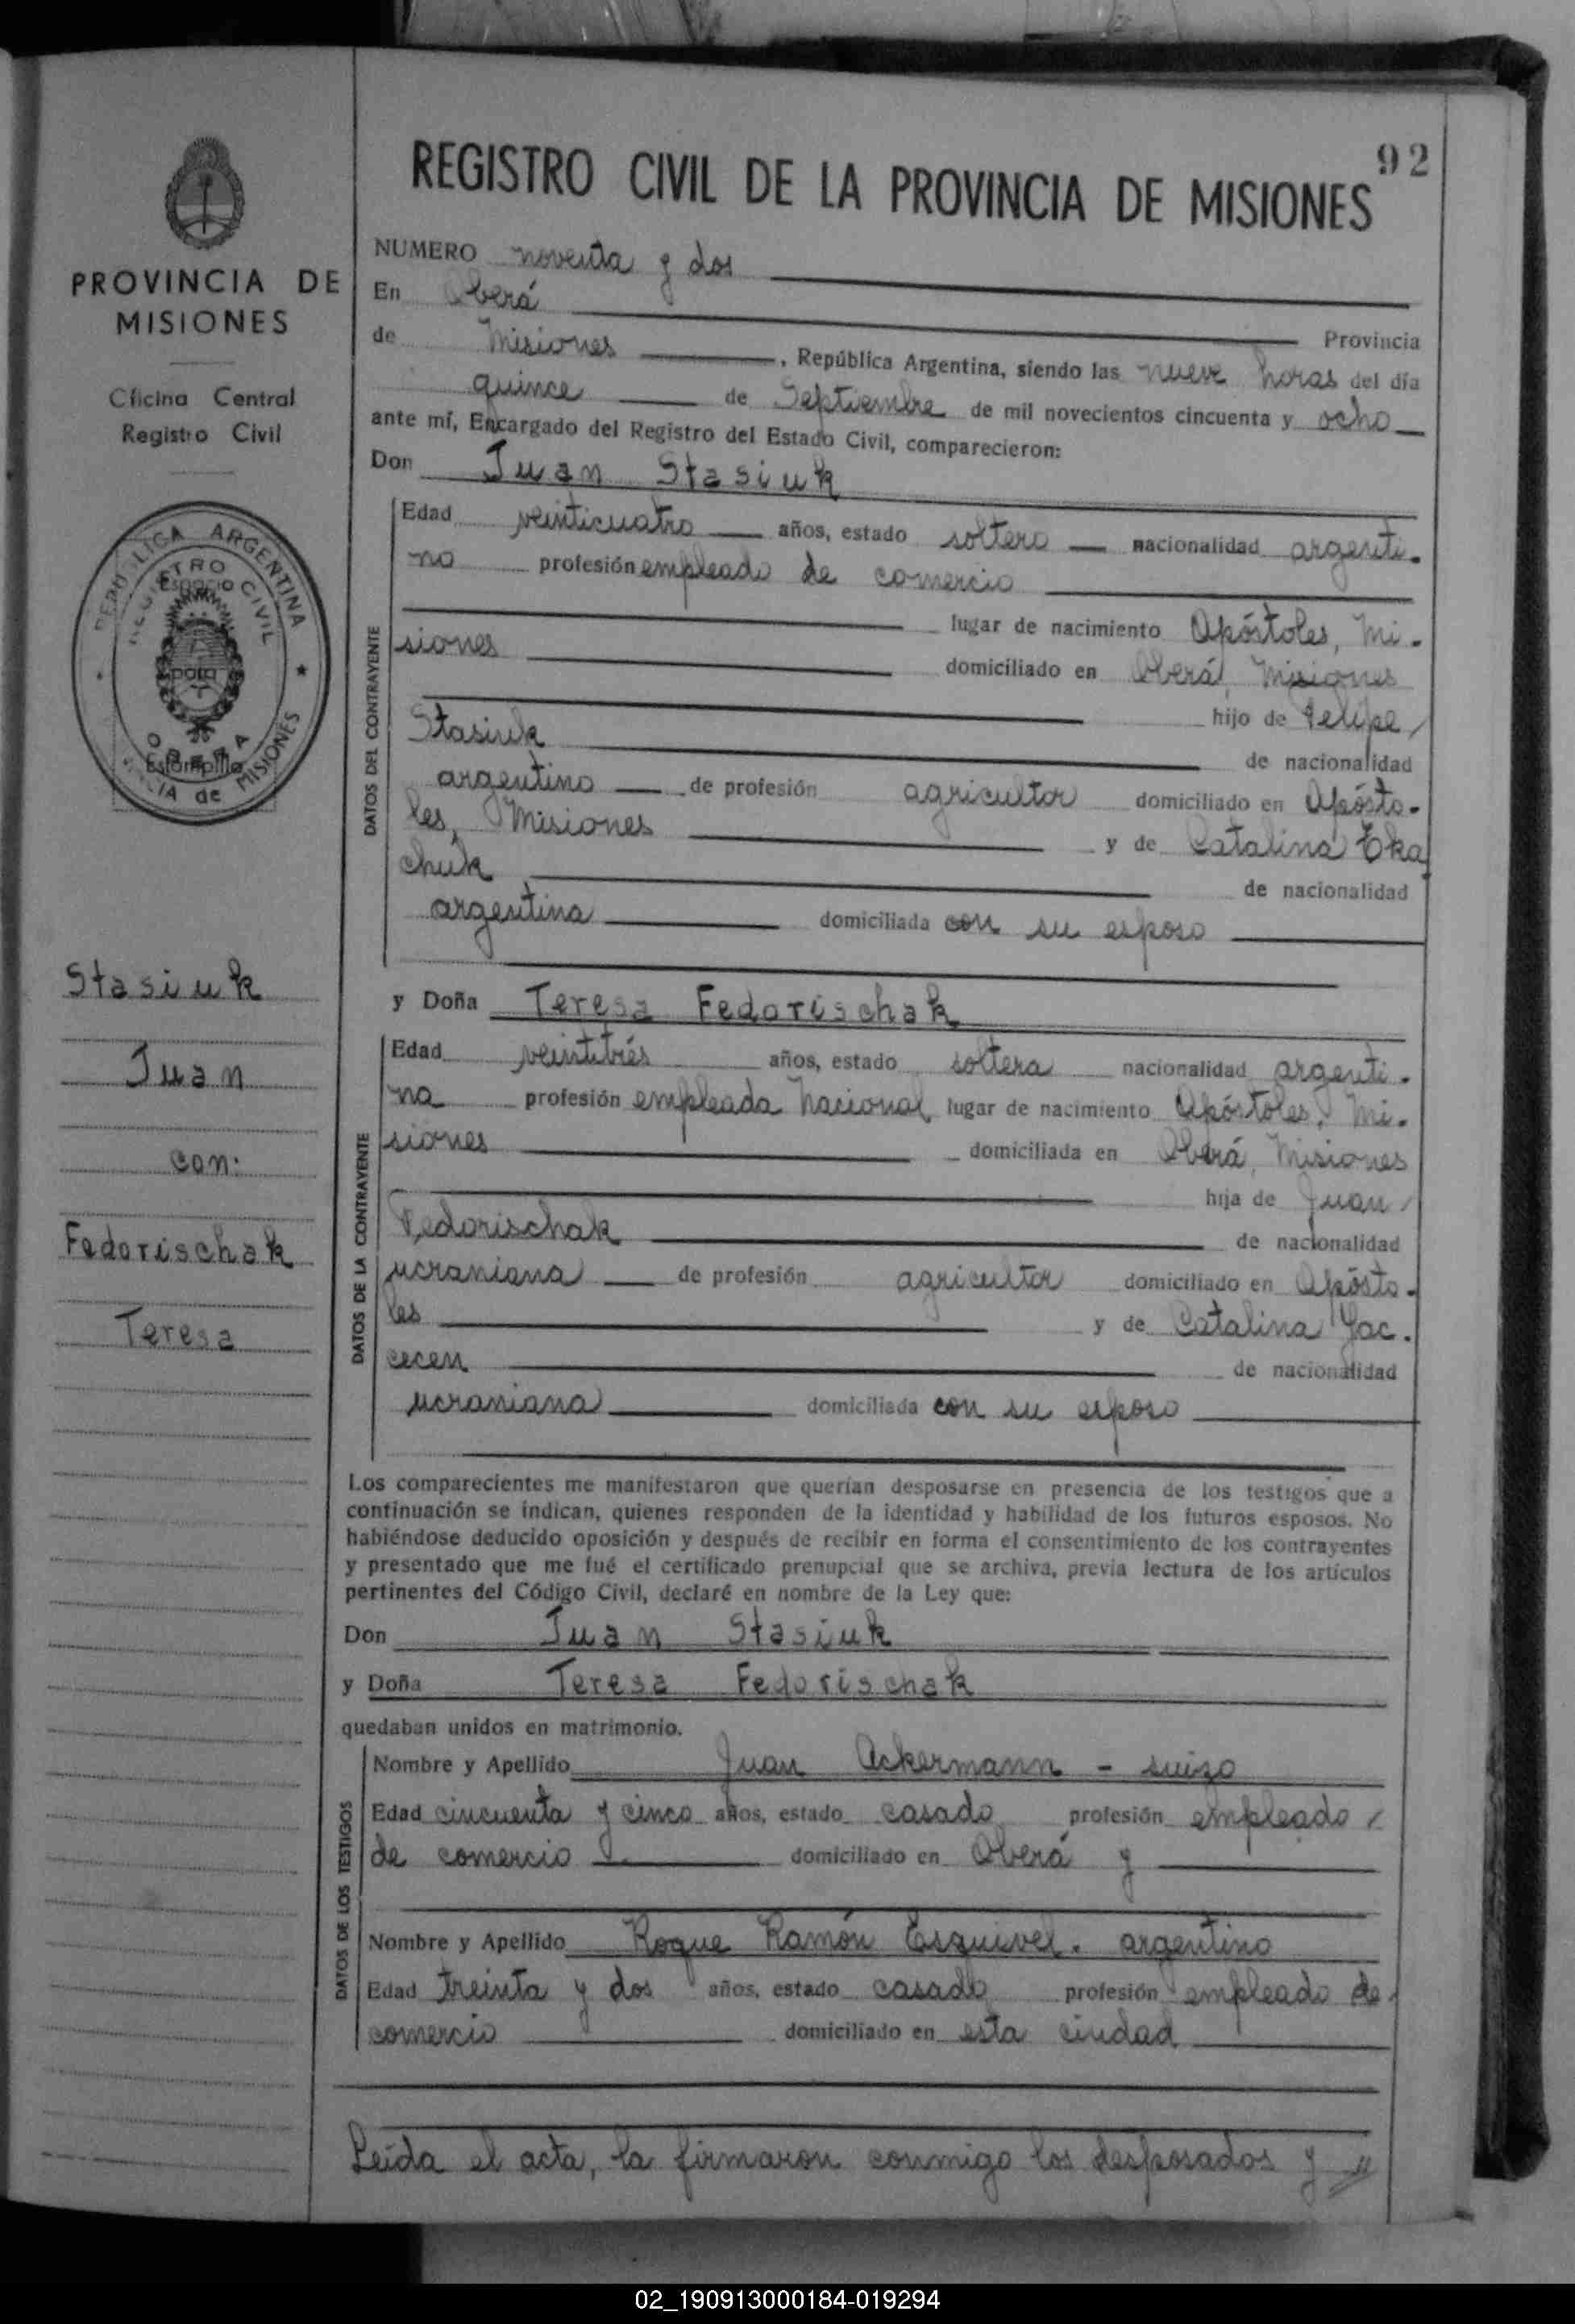 92
REGISTRO CIVIL DE LA PROVINCIA DE MISIONES
PROVINCIA DE
MISIONES
Oficina Central
Registro Civil
REPUBLICA ARGENTINA
REGISTRO CIVIL
Espacio
para
Estampilla
OBERA
PROVINCIA de MISIONES
Stasiuk
Juan
con:
Fedorischak
Teresa
NUMERO noventa y dos
En Oberá Provincia
de Misiones, República Argentina, siendo las nueve horas del día
quince de Septiembre de mil novecientos cincuenta y ocho
ante mí, Encargado del Registro del Estado Civil, comparecieron:
Don Juan Stasiuk
DATOS DEL CONTRAYENTE
Edad veinticuatro años, estado soltero nacionalidad argenti-
no profesión empleado de comercio
lugar de nacimiento Apóstoles, Mi-
siones domiciliado en Oberá, Misiones
hijo de Felipe
Stasiuk de nacionalidad
argentino de profesión agricultor domiciliado en Apósto-
les, Misiones y de Catalina Tka
chuk de nacionalidad
argentina domiciliada con su esposo
y Doña Teresa Fedorischak
DATOS DE LA CONTRAYENTE
Edad veintitrés años, estado soltera nacionalidad argenti-
na profesión empleada Nacional lugar de nacimiento Apóstoles, Mi-
siones domiciliada en Oberá, Misiones
hija de Juan
Fedorischak de nacionalidad
ucraniana de profesión agricultor domiciliado en Apósto-
les y de Catalina Yac-
cecen de nacionalidad
ucraniana domiciliada con su esposo
Los comparecientes me manifestaron que querían desposarse en presencia de los testigos que a
continuación se indican, quienes responden de la identidad y habilidad de los futuros esposos. No
habiéndose deducido oposición y después de recibir en forma el consentimiento de los contrayentes
y presentado que me fué el certificado prenupcial que se archiva, previa lectura de los artículos
pertinentes del Código Civil, declaré en nombre de la Ley que:
Don Juan Stasiuk
y Doña Teresa Fedorischak
quedaban unidos en matrimonio.
DATOS DE LOS TESTIGOS
Nombre y Apellido Juan Ackermann - suizo
Edad cincuenta y cinco años, estado casado profesión empleado
de comercio domiciliado en Oberá y
Nombre y Apellido Roque Ramón Esquivel. argentino
Edad treinta y dos años, estado casado profesión empleado de
comercio domiciliado en esta ciudad
Leída el acta, la firmaron conmigo los desposados y //
02_190913000184-019294